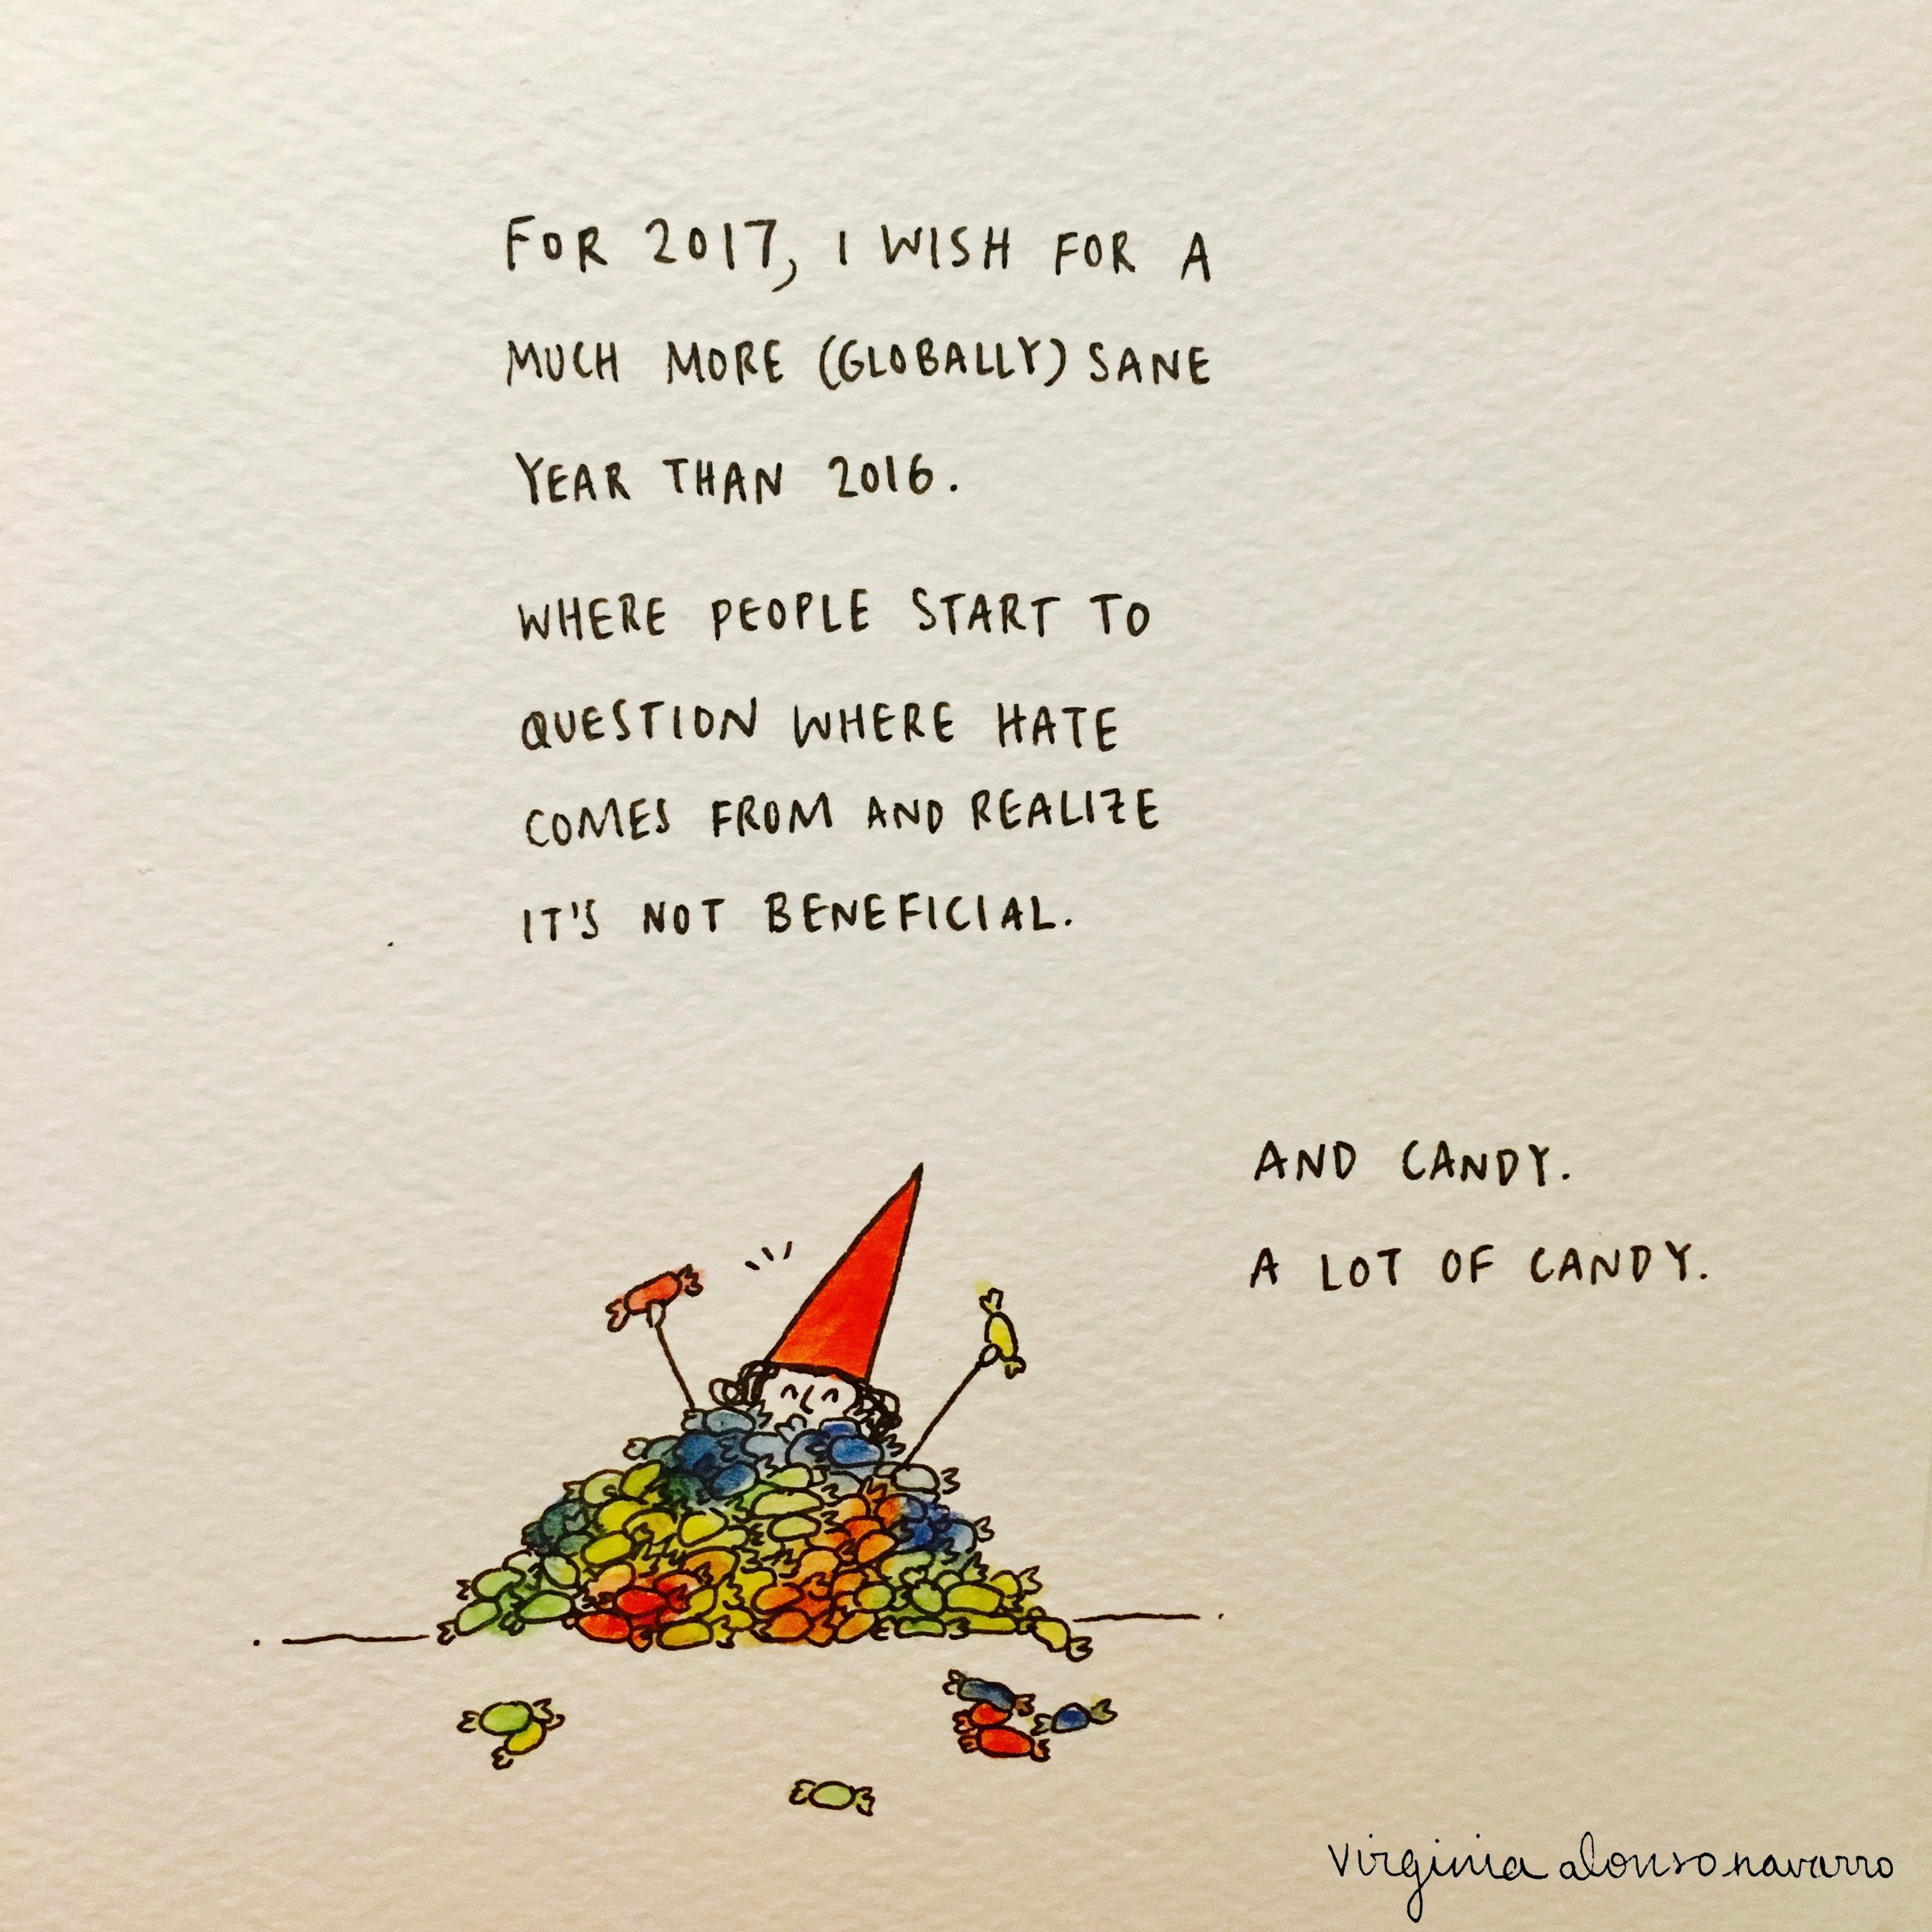 FOR 2017, I WISH FOR A
MUCH MORE (GLOBALLY) SANE
YEAR THAN 2016.
WHERE PEOPLE START TO
QUESTION WHERE HATE
COMES FROM AND REALIZE
IT'S NOT BENEFICIAL.
AND CANDY.
A LOT OF CANDY.
virginia alonso navarro